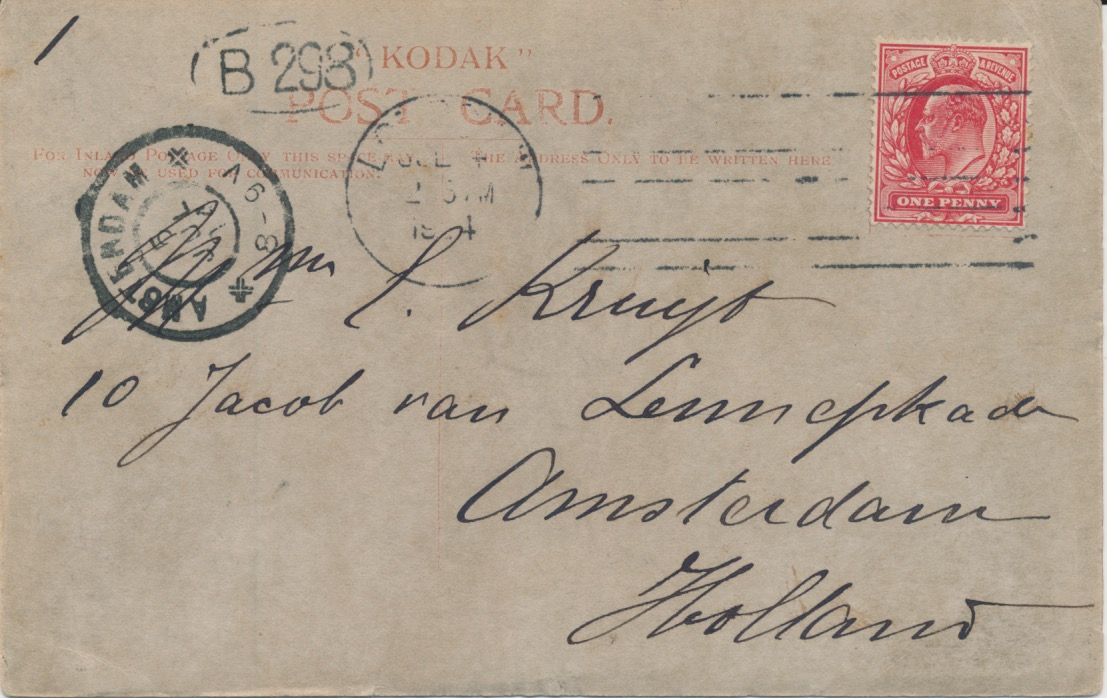 1
B 298
"KODAK"
POST CARD.
FOR INLAND POSTAGE ONLY THIS SPACE MAY
NOW BE USED FOR COMMUNICATION.
THE ADDRESS ONLY TO BE WRITTEN HERE
POSTAGE & REVENUE
ONE PENNY
AMSTERDAM
JUL 4
1904
Kruijt
10 Jacob van Lennepkade
Amsterdam
Holland